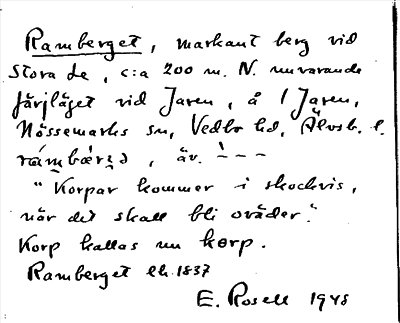 Ramberget, markant berg vid
Stora Le, c:a 200 m. N. nuvarande
färjläget vid Jaren, å / Jaren,
Nössemarks sn, Vedbo hd, Älvsb. l.
"Korpar kommer i skockvis,
när det skall bli oväder."
Korp kallas nu korp.
Ramberget ek. 1837
E. Rosell 1948